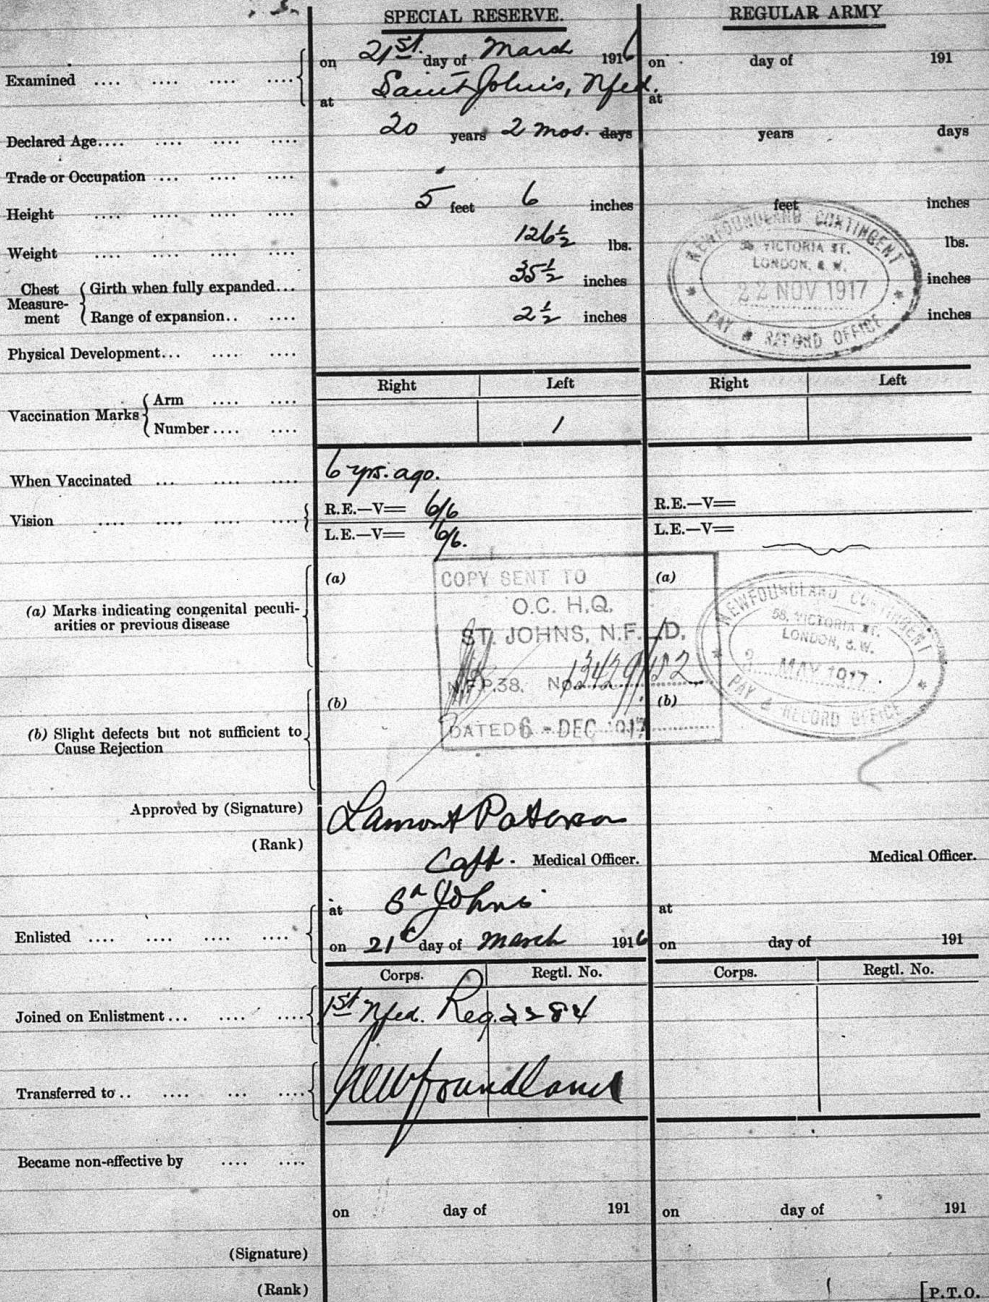 SPECIAL RESERVE. REGULAR ARMY
Examined .... .... .... .... on 21st. day of March 1916 on day of 191
at Saint John's, Nfld. at
Declared Age.... .... .... .... 20 years 2 mos. days years days
Trade or Occupation .... .... ....
Height .... .... .... .... 5 feet 6 inches feet inches
Weight .... .... .... .... 126½ lbs. lbs.
Chest Measure-ment Girth when fully expanded... 35½ inches inches
Range of expansion.. .... 2½ inches inches
NEWFOUNDLAND CONTINGENT
58, VICTORIA ST.
LONDON, S. W.
22 NOV 1917
PAY & RECORD OFFICE
Physical Development... .... ....
Right Left Right Left
Vaccination Marks Arm .... ....
Number.... .... 1
When Vaccinated ... .... .... 6 yrs. ago.
Vision .... .... .... .... R.E.—V= 6/6 R.E.—V=
L.E.—V= 6/6. L.E.—V=
(a) Marks indicating congenital peculi-
arities or previous disease
(a) (a)
COPY SENT TO
O.C. H.Q.
ST. JOHNS, N.F.L.D.
N.F.P.38. No.
DATED 6 - DEC 1917
NEWFOUNDLAND CONTINGENT
58, VICTORIA ST.
LONDON, S.W.
MAY 1917
PAY & RECORD OFFICE
(b) Slight defects but not sufficient to
Cause Rejection
(b) (b)
Approved by (Signature) Lamont Paterson
(Rank) Capt. Medical Officer. Medical Officer.
Enlisted .... .... .... .... at St Johns at
on 21st day of March 1916 on day of 191
Corps. Regtl. No. Corps. Regtl. No.
Joined on Enlistment... .... .... 1st Nfld. Reg. 2284
Transferred to.. .... ... .... Newfoundland
Became non-effective by .... ....
on day of 191 on day of 191
(Signature)
(Rank)
[P.T.O.